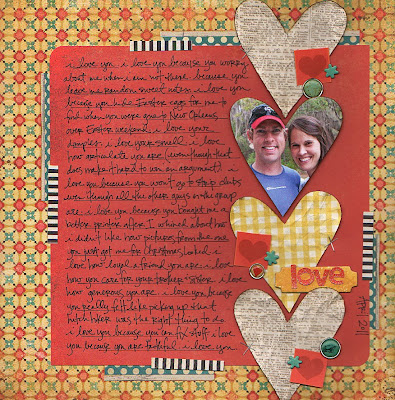 i love you i love you because you worry
about me when i am not there. because you
leave me random sweet notes i love you
because you hide Easter eggs for me to
find when you were gone to New Orleans
over Easter weekend i love your
dimples i love your smell i love
how articulate you are (even though that
does make it hard to win an argument) i
love you because you won't go to strip clubs
even though all the other guys in the group
are. i love you because you bought me a
better printer after I whined about how
i didn't like how pictures from the one
you just got me for Christmas looked i
love how loyal a friend you are i love
how you care for your brother & i love
how generous you are i love you because
you really felt like picking up that
hitch hiker was the right thing to do
i love you because you can fix stuff i love
you because you are faithful i love you
love
April 2011